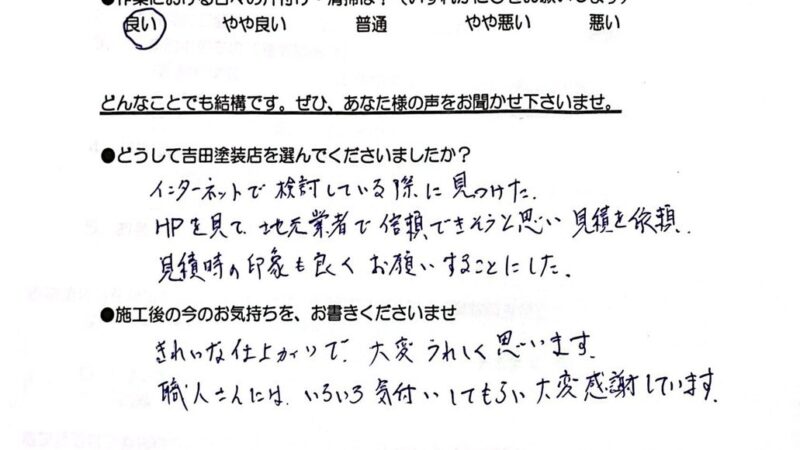 ●作業における日々の片付け・清掃は？（いずれかに○をお願いします）
良い やや良い 普通 やや悪い 悪い
どんなことでも結構です。ぜひ、あなた様の声をお聞かせ下さいませ。
●どうして吉田塗装店を選んでくださいましたか？
インターネットで検討している際に見つけた.
HPを見て、地元業者で信頼できそうと思い見積を依頼.
見積時の印象も良くお願いすることにした.
●施工後の今のお気持ちを、お書きくださいませ
きれいな仕上がりで、大変うれしく思います.
職人さんには、いろいろ気付いしてもらい大変感謝しています.